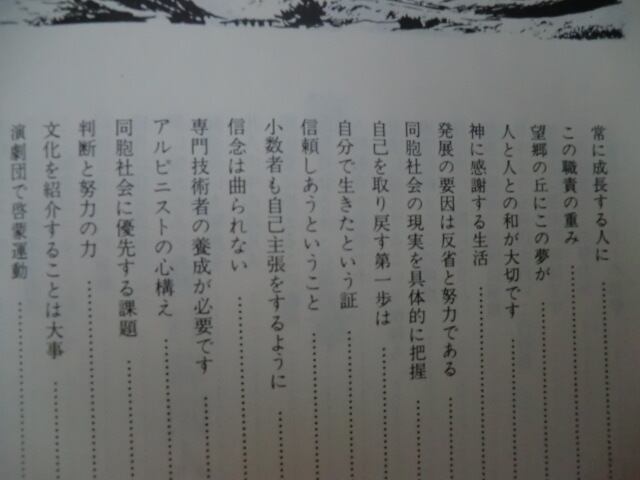 常に成長する人に
この職責の重み
望郷の丘にこの夢が
人と人との和が大切です
神に感謝する生活
発展の要因は反省と努力である
同胞社会の現実を具体的に把握
自己を取り戻す第一歩は
自分で生きたという証
信頼しあうということ
小数者も自己主張をするように
信念は曲られない
専門技術者の養成が必要です
アルピニストの心構え
同胞社会に優先する課題
判断と努力の力
文化を紹介することは大事
演劇団で啓蒙運動